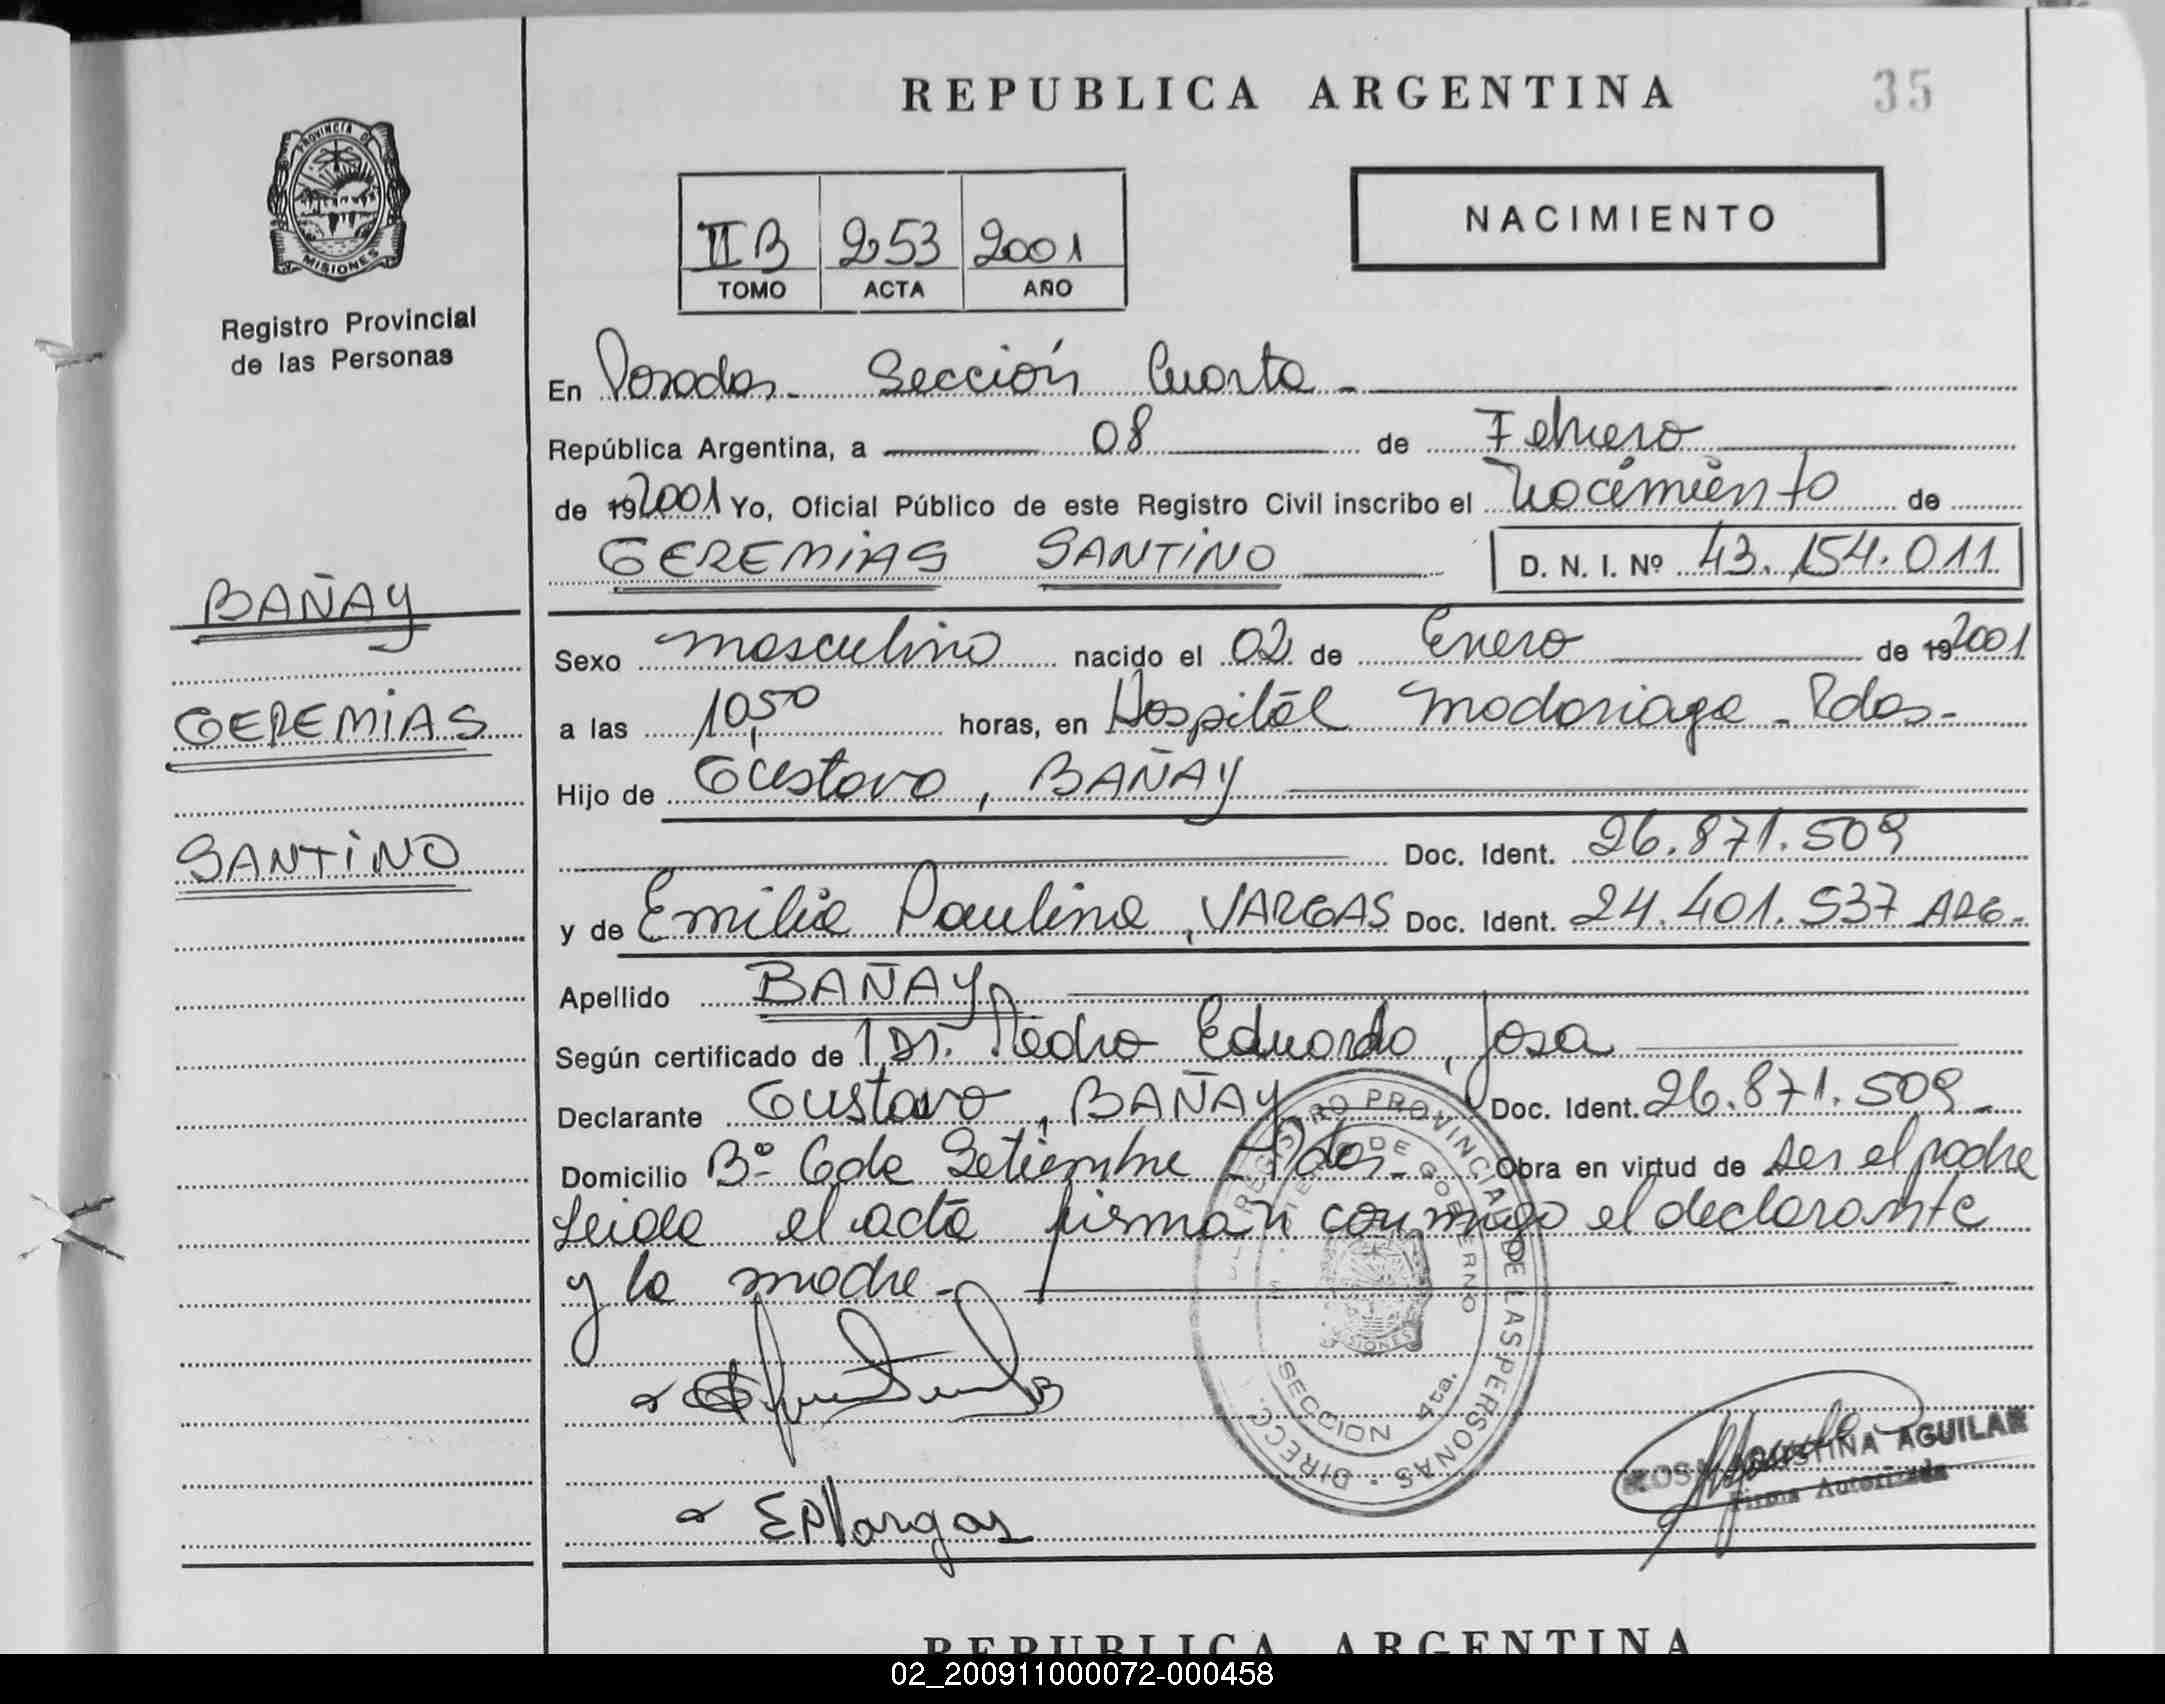 REPUBLICA ARGENTINA
35
PROVINCIA DE
MISIONES
Registro Provincial
de las Personas
II B 253 2001
TOMO ACTA AÑO
NACIMIENTO
En Posadas - Sección Cuarta -
República Argentina, a 08 de Febrero
de 19 2001 Yo, Oficial Público de este Registro Civil inscribo el Nacimiento de
GEREMIAS SANTINO D. N. I. Nº 43.154.011
BAÑAY
GEREMIAS
SANTINO
Sexo masculino nacido el 02 de Enero de 19 2001
a las 10,50 horas, en Hospital Madariaga - Pdas -
Hijo de Gustavo, BAÑAY
Doc. Ident. 26.871.509
y de Emilia Paulina, VARGAS Doc. Ident. 24.401.537 ARG.-
Apellido BAÑAY
Según certificado de Dr. Pedro Eduardo, Josa
Declarante Gustavo, BAÑAY Doc. Ident. 26.871.509 -
Domicilio Bº 6 de Setiembre - Pdas - Obra en virtud de ser el padre
Leida el acta firman conmigo el declarante
y la madre -
DIRECC. REGISTRO PROVINCIAL DE LAS PERSONAS
DE GOBIERNO
MISIONES
SECCION 4ta.
EPVargas
AGUSTINA AGUILAR
Firma Autorizada
REPUBLICA ARGENTINA
02_200911000072-000458